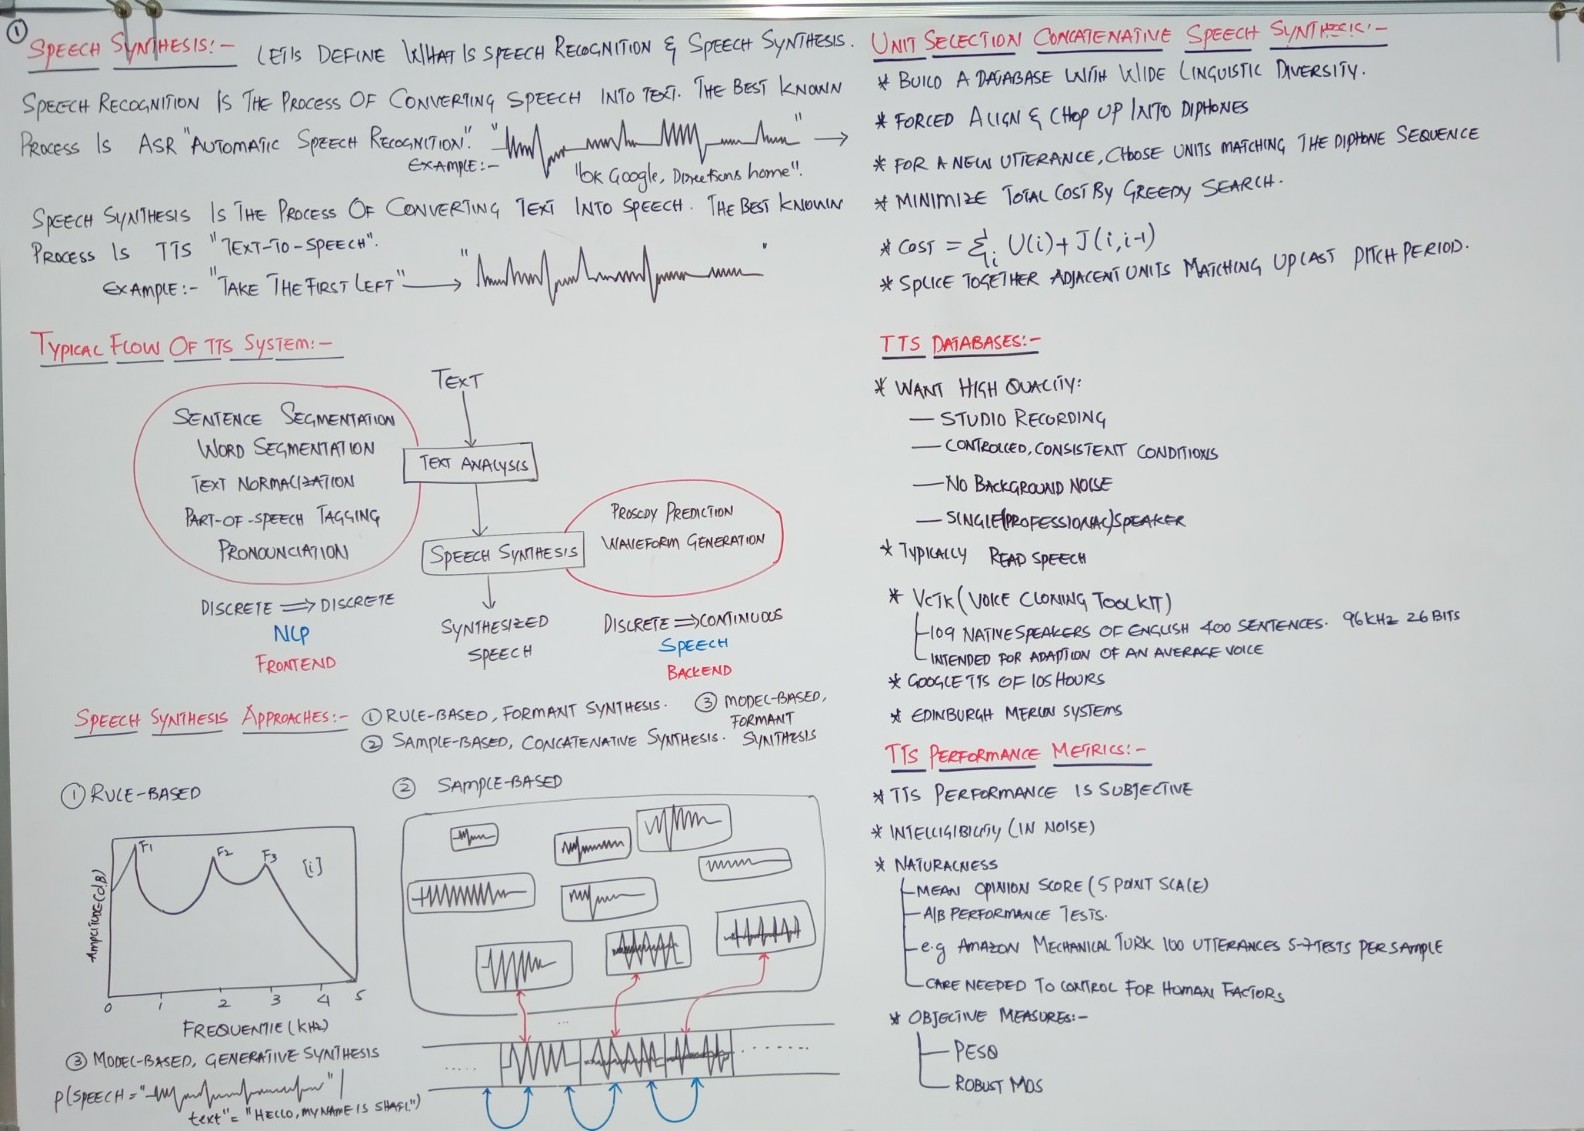 ①
SPEECH SYNTHESIS:- LETS DEFINE WHAT IS SPEECH RECOGNITION & SPEECH SYNTHESIS.
SPEECH RECOGNITION IS THE PROCESS OF CONVERTING SPEECH INTO TEXT. THE BEST KNOWN
PROCESS IS ASR "AUTOMATIC SPEECH RECOGNITION".
EXAMPLE:- "OK Google, Directions home".
SPEECH SYNTHESIS IS THE PROCESS OF CONVERTING TEXT INTO SPEECH. THE BEST KNOWN
PROCESS IS TTS "TEXT-TO-SPEECH".
EXAMPLE:- "TAKE THE FIRST LEFT"
TYPICAL FLOW OF TTS SYSTEM:-
TEXT
SENTENCE SEGMENTATION
WORD SEGMENTATION
TEXT NORMALIZATION
PART-OF-SPEECH TAGGING
PRONOUNCIATION
TEXT ANALYSIS
SPEECH SYNTHESIS
PROSODY PREDICTION
WAVEFORM GENERATION
DISCRETE ⟹ DISCRETE
NLP
FRONTEND
SYNTHESIZED
SPEECH
DISCRETE ⟹ CONTINUOUS
SPEECH
BACKEND
SPEECH SYNTHESIS APPROACHES:- ① RULE-BASED, FORMANT SYNTHESIS.
② SAMPLE-BASED, CONCATENATIVE SYNTHESIS.
③ MODEL-BASED,
FORMANT
SYNTHESIS
① RULE-BASED
F1 F2 F3 [i]
Amplitude(dB)
0 1 2 3 4 5
FREQUENTIE (kHz)
② SAMPLE-BASED
③ MODEL-BASED, GENERATIVE SYNTHESIS
P(SPEECH = " " |
text" = "HELLO, MY NAME IS SHAFI.")
UNIT SELECTION CONCATENATIVE SPEECH SYNTHESIS:-
* BUILD A DATABASE WITH WIDE LINGUISTIC DIVERSITY.
* FORCED ALIGN & CHOP UP INTO DIPHONES
* FOR A NEW UTTERANCE, CHOOSE UNITS MATCHING THE DIPHONE SEQUENCE
* MINIMIZE TOTAL COST BY GREEDY SEARCH.
* COST = Σi U(i) + J(i, i-1)
* SPLICE TOGETHER ADJACENT UNITS MATCHING UP LAST PITCH PERIOD.
TTS DATABASES:-
* WANT HIGH QUALITY:
— STUDIO RECORDING
— CONTROLLED, CONSISTENT CONDITIONS
— NO BACKGROUND NOISE
— SINGLE (PROFESSIONAL) SPEAKER
* TYPICALLY READ SPEECH
* VCTK (VOICE CLONING TOOLKIT)
109 NATIVE SPEAKERS OF ENGLISH 400 SENTENCES. 96KHZ 26 BITS
INTENDED FOR ADAPTION OF AN AVERAGE VOICE
* GOOGLE TTS OF 10S HOURS
* EDINBURGH MERLIN SYSTEMS
TTS PERFORMANCE METRICS:-
* TTS PERFORMANCE IS SUBJECTIVE
* INTELLIGIBILITY (IN NOISE)
* NATURALNESS
MEAN OPINION SCORE (5 POINT SCALE)
A/B PERFORMANCE TESTS.
e.g AMAZON MECHANICAL TURK 100 UTTERANCES 5-7 TESTS PER SAMPLE
CARE NEEDED TO CONTROL FOR HUMAN FACTORS
* OBJECTIVE MEASURES:-
PESQ
ROBUST MOS